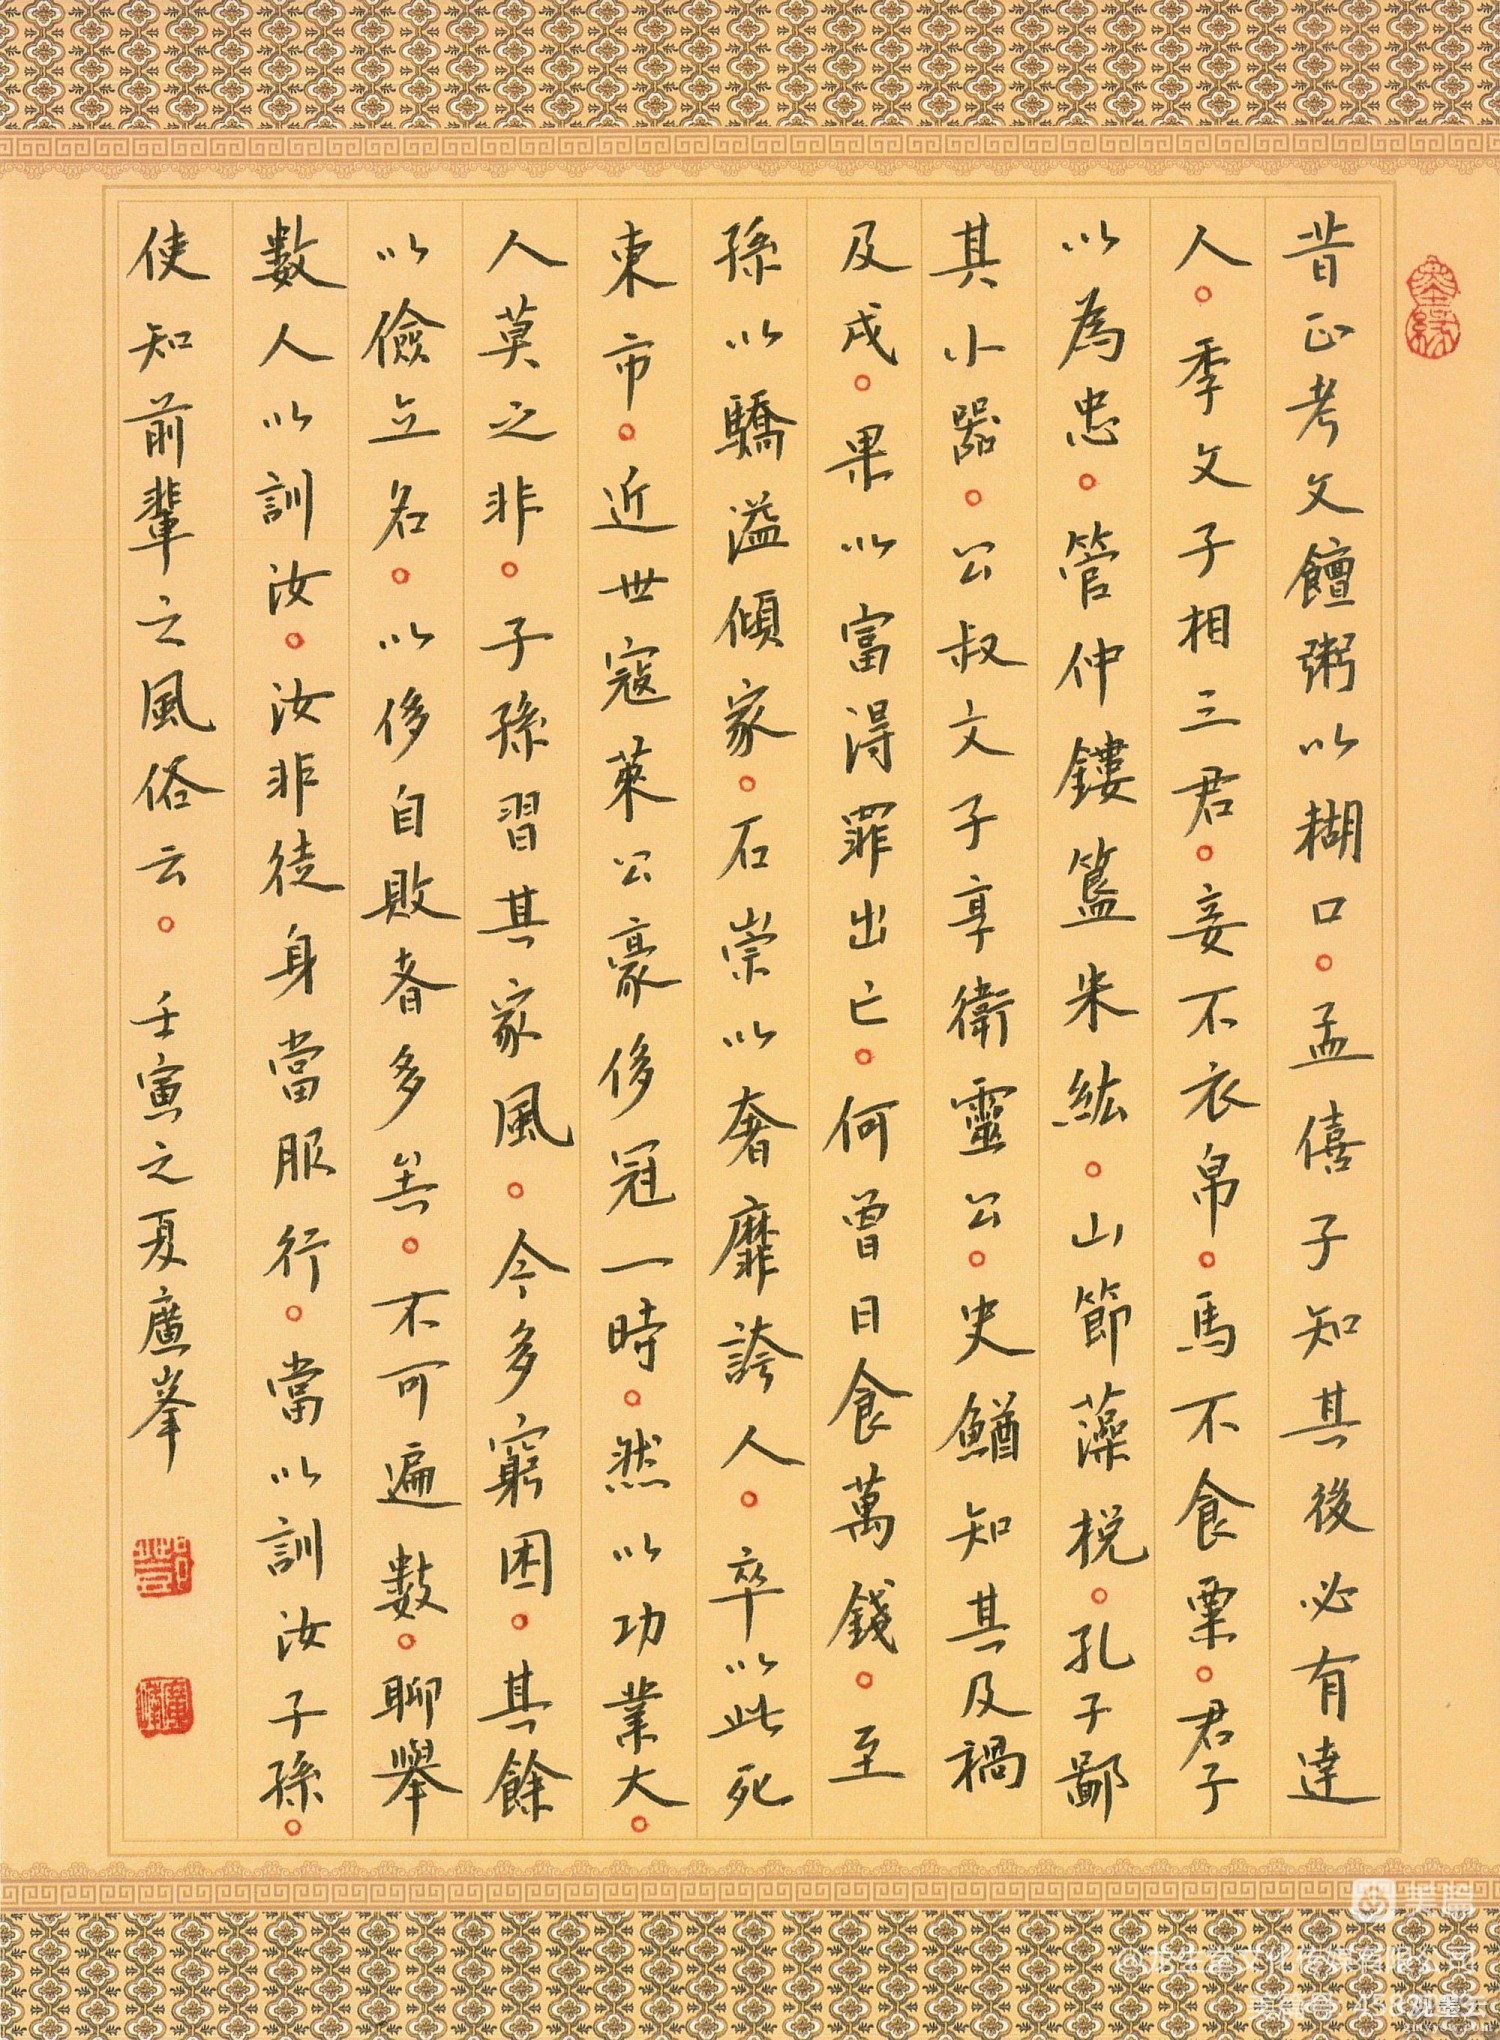 昔正考父饘粥以糊口。孟僖子知其後必有達
人。季文子相三君。妾不衣帛。馬不食粟。君子
以為忠。管仲鏤簋朱紘。山節藻梲。孔子鄙
其小器。公叔文子享衛靈公。史鰌知其及禍
及戌。果以富得罪出亡。何曾日食萬錢。至
孫以驕溢傾家。石崇以奢靡誇人。卒以此死
東市。近世寇萊公豪侈冠一時。然以功業大。
人莫之非。子孫習其家風。今多窮困。其餘
以儉立名。以侈自敗者多矣。不可遍數。聊舉
數人以訓汝。汝非徒身當服行。當以訓汝子孫。
使知前輩之風俗云。壬寅之夏廣峯
墨緣
美篇
@龙生堂文化传媒有限公司